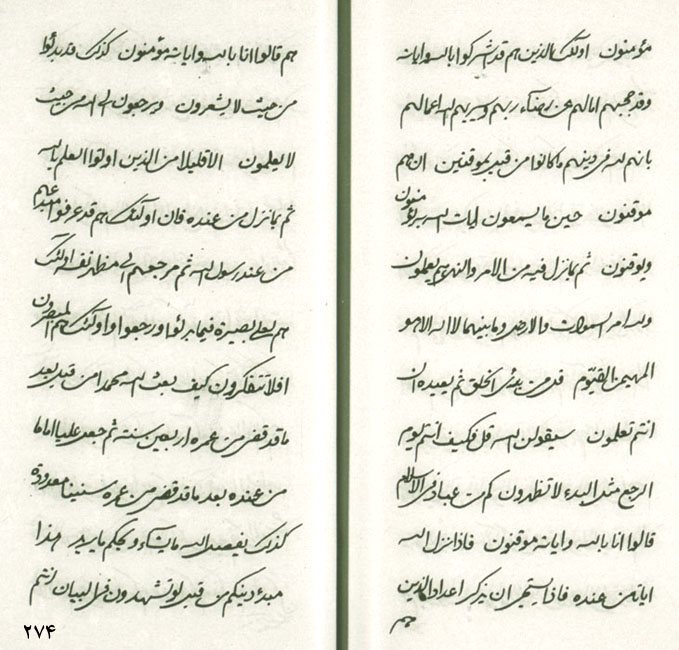 مؤمنون اولئک الذین هم قد اشرکوا بالله وایاته
وقد حجبهم امالهم عن رضاء ربهم وسیریهم الله اعمالهم
بانهم لله فی دینهم ما کانوا من قبل بموقنین ان هم
موقنون حین ما یسمعون ایات الله بها یؤمنون
ویوقنون ثم بما نزل فیه من الامر والنهی یعملون
ولله امر السموات والارض وما بینهما لا اله الا هو
المهیمن القیّوم قل من یبدئ الخلق ثم یعیده ان
انتم تعلمون سیقولن الله قل فکیف انتم یوم
الرجع مثل البدء لا تنظرون کم من عباد فی الاسلام
قالوا انا بالله وایاته موقنون فاذا نزل الله
ایاته من عنده فاذا یستحیی ان یذکر اعداد الذین
هم
هم قالوا انا بالله وایاته مؤمنون کذلک قد بدئوا
من حیث لا یشعرون ویرجعون الی الله من حیث
لا یعلمون الا قلیلا من الذین اوتوا العلم بالله
ثم بما نزل من عنده فان اولئک هم قد عرفوا مبدئهم
من عند رسول الله ثم مرجعهم الی مظهر نفسه اولئک
هم علی بصیرة فیما بدئوا ورجعوا واولئک هم المبصرون
افلا تتفکرون کیف بعث الله محمدا من قبل بعد
ما قد قضی من عمره اربعین سنة ثم جعل علیا اماما
من عنده بعد ما قد قضی من عمره سنینا معدودة
کذلک یفعل الله ما یشاء ویحکم ما یرید هذا
مبدء دینکم من قبل لو تشهدون فی البیان انتم
۲۷۴